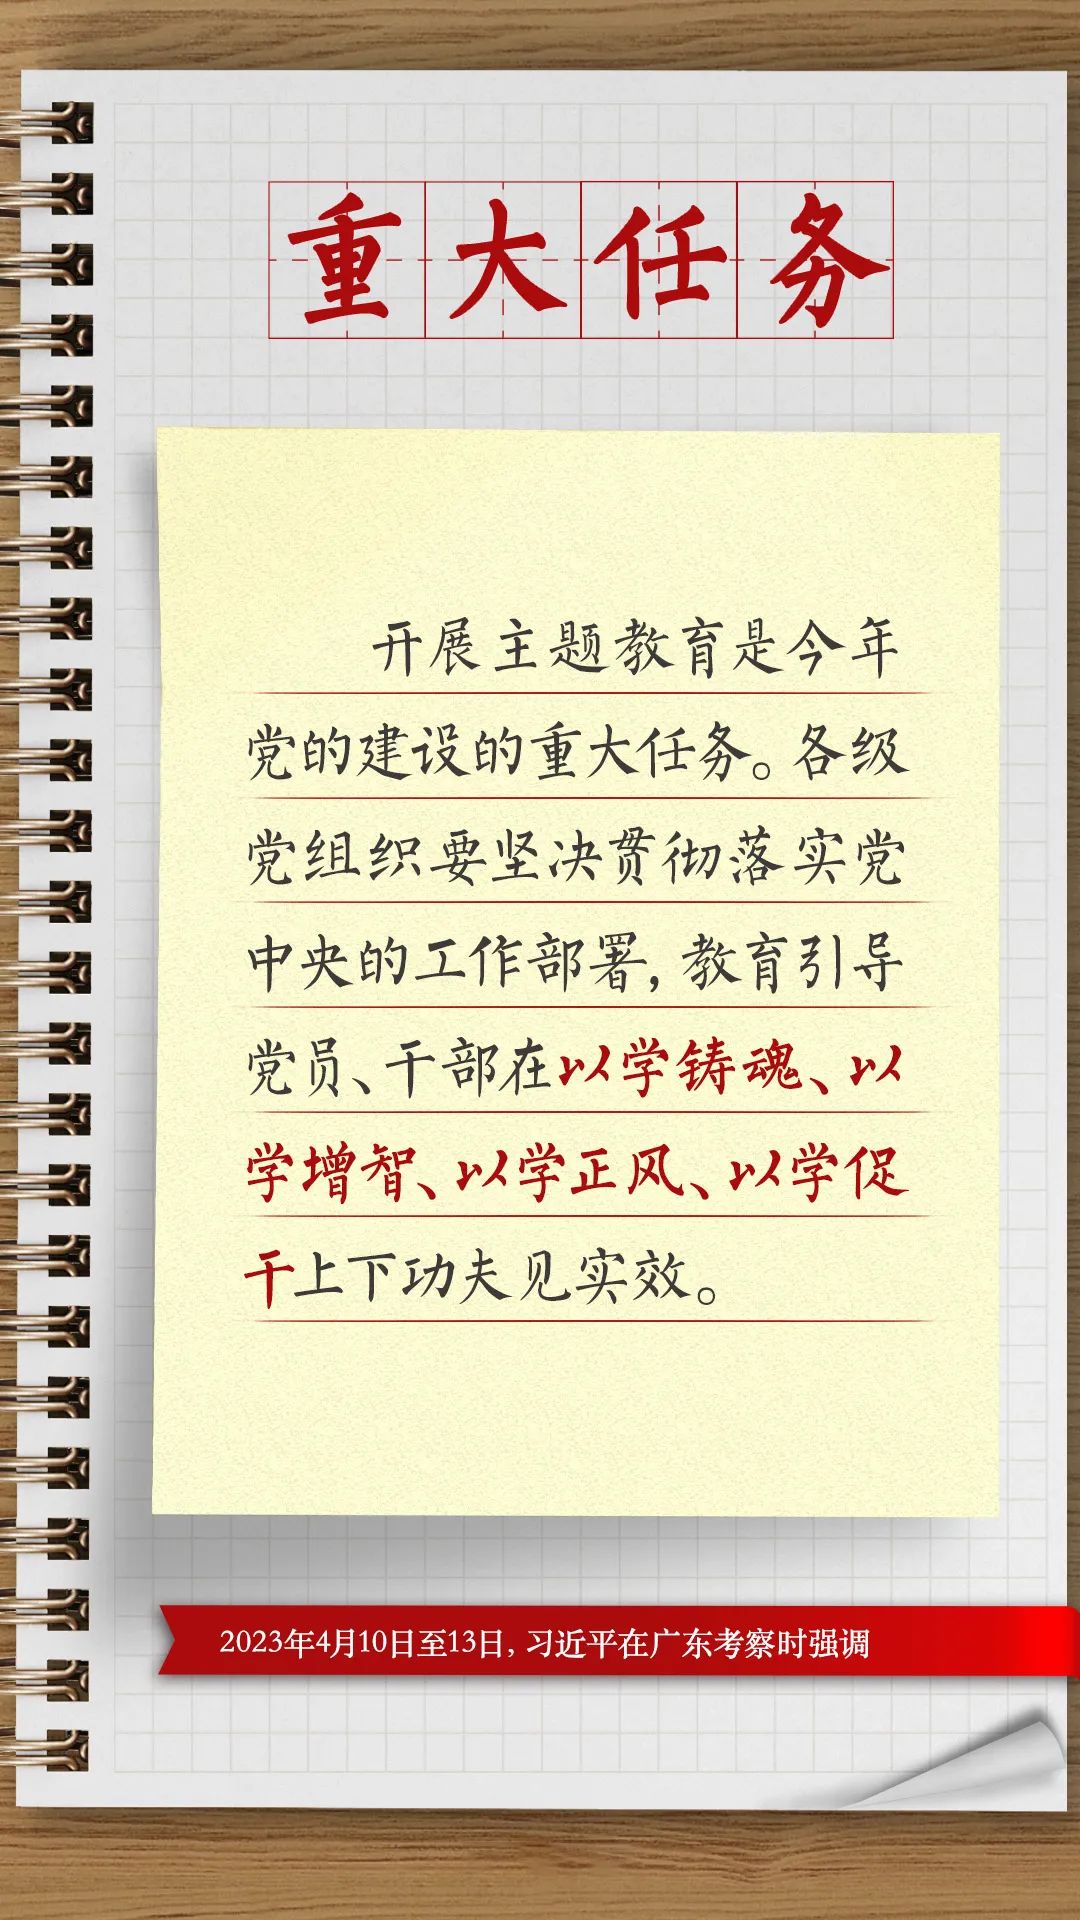 重大任务
开展主题教育是今年
党的建设的重大任务。各级
党组织要坚决贯彻落实党
中央的工作部署，教育引导
党员、干部在以学铸魂、以
学增智、以学正风、以学促
干上下功夫见实效。
2023年4月10日至13日，习近平在广东考察时强调